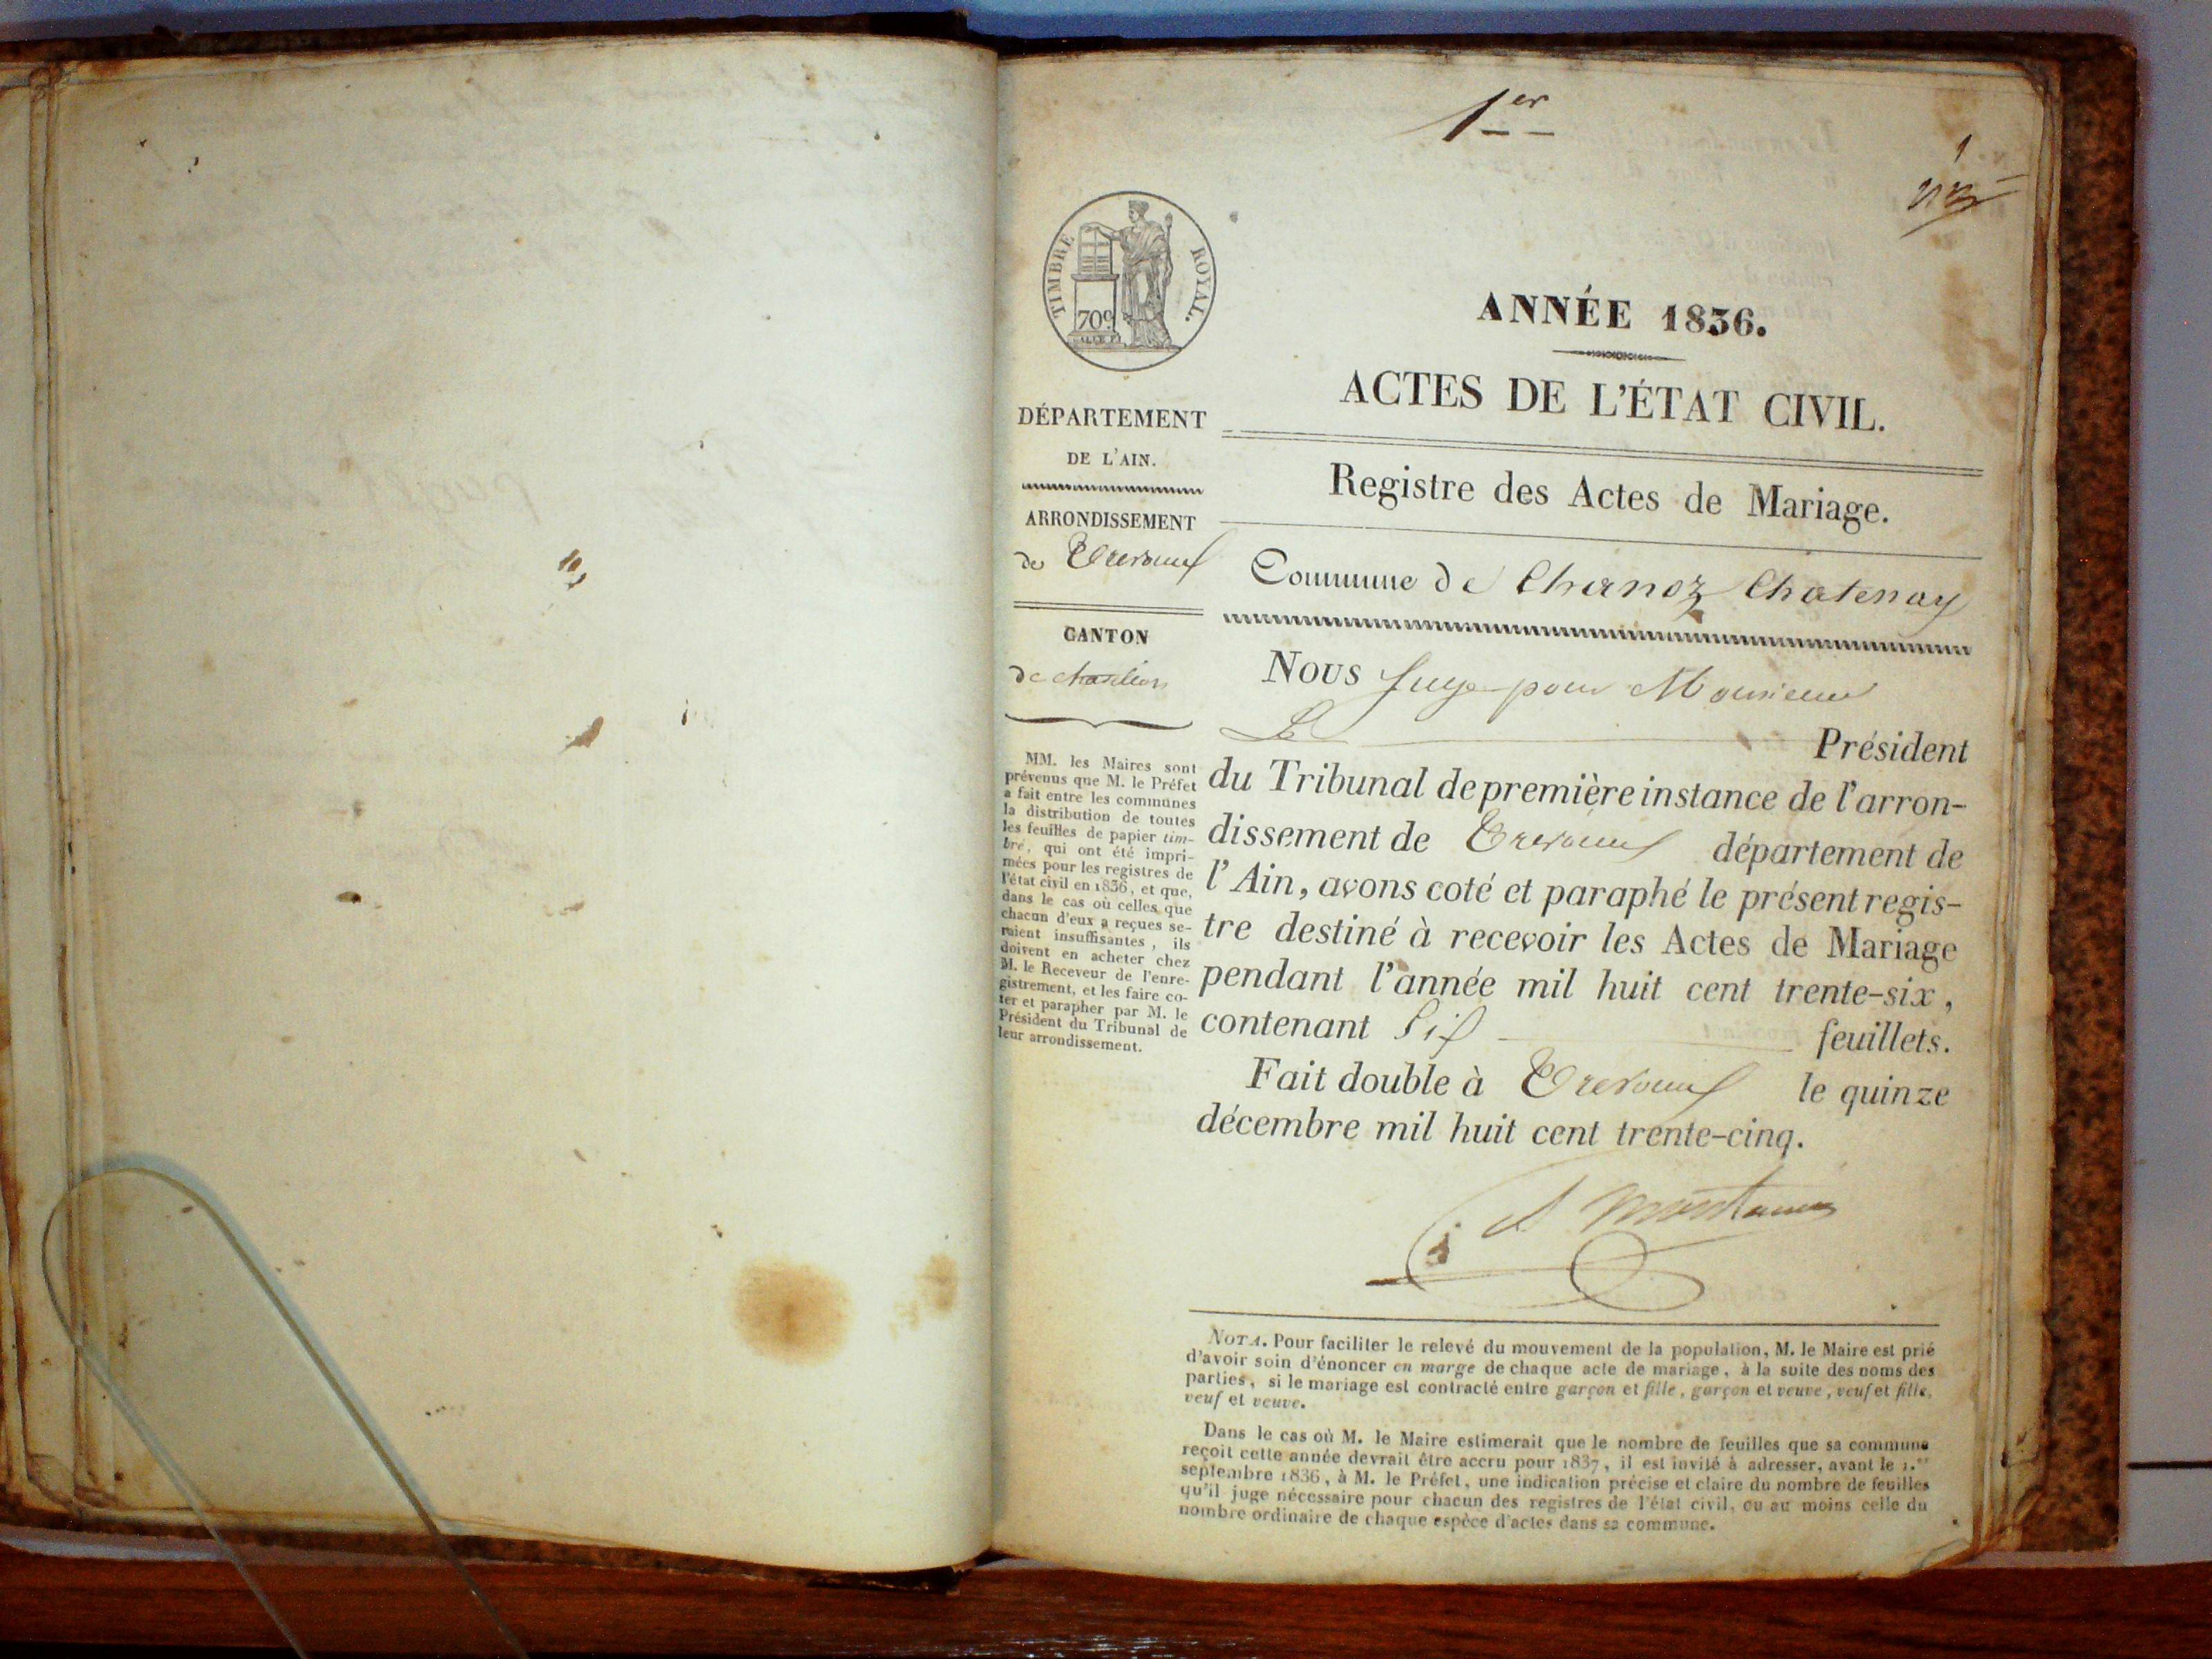 1er
1
TIMBRE ROYAL.
70c
ANNÉE 1836.
ACTES DE L'ÉTAT CIVIL.
Registre des Actes de Mariage.
DÉPARTEMENT
DE L'AIN.
ARRONDISSEMENT
de Trevoux
CANTON
de chatillon
MM. les Maires sont
prévenus que M. le Préfet
a fait entre les communes
la distribution de toutes
les feuilles de papier tim-
bré, qui ont été impri-
mées pour les registres de
l'état civil en 1836, et que,
dans le cas où celles que
chacun d'eux a reçues se-
raient insuffisantes, ils
doivent en acheter chez
M. le Receveur de l'enre-
gistrement, et les faire co-
ter et parapher par M. le
Président du Tribunal de
leur arrondissement.
Commune de Chanoz Chatenay
Nous Juge pour Monsieur
Le Président
du Tribunal de première instance de l'arron-
dissement de Trevoux département de
l'Ain, avons coté et paraphé le présent regis-
tre destiné à recevoir les Actes de Mariage
pendant l'année mil huit cent trente-six,
contenant Six feuillets.
Fait double à Trevoux le quinze
décembre mil huit cent trente-cinq.
NOTA. Pour faciliter le relevé du mouvement de la population, M. le Maire est prié
d'avoir soin d'énoncer en marge de chaque acte de mariage, à la suite des noms des
parties, si le mariage est contracté entre garçon et fille, garçon et veuve, veuf et fille,
veuf et veuve.
Dans le cas où M. le Maire estimerait que le nombre de feuilles que sa commune
reçoit cette année devrait être accru pour 1837, il est invité à adresser, avant le 1.er
septembre 1836, à M. le Préfet, une indication précise et claire du nombre de feuilles
qu'il juge nécessaire pour chacun des registres de l'état civil, ou au moins celle du
nombre ordinaire de chaque espèce d'actes dans sa commune.